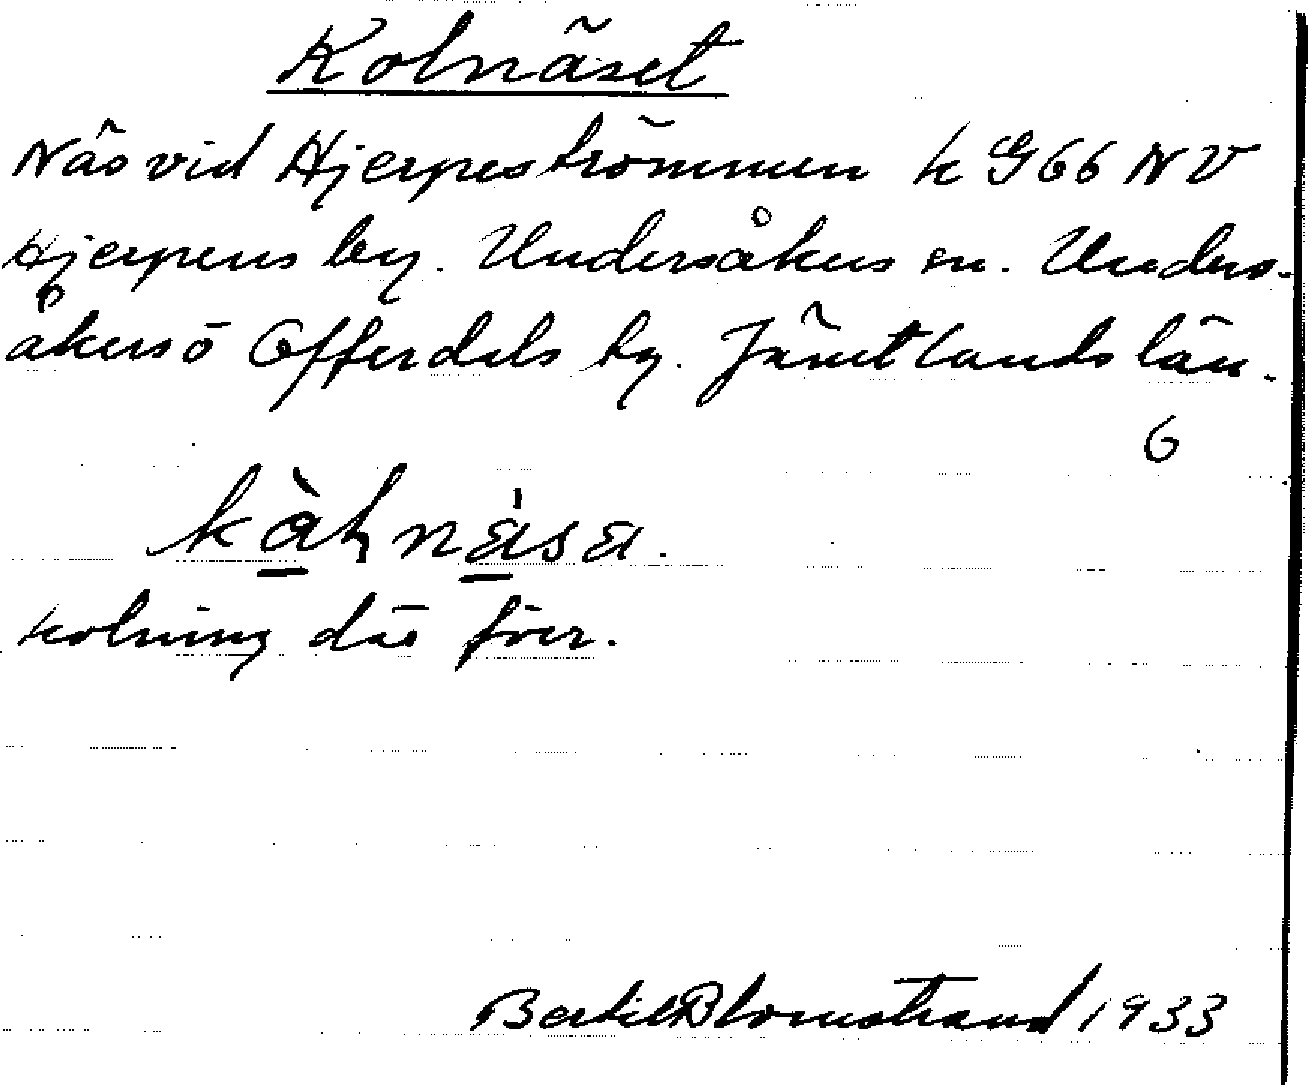 Kolnäset
Näs vid Hjerpeströmmen k G66 NV
Hjerpens by. Undersåkers sn. Unders-
åkers o Offerdals tg. Jämtlands län.
6
kàłnàsa.
Kolning där förr.
Bertil Blomstrand 1933